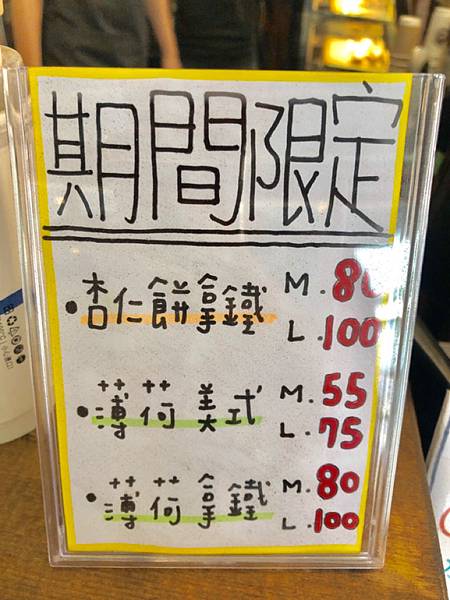 期間限定
•杏仁餅拿鐵 M.80
L.100
•薄荷美式 M.55
L.75
•薄荷拿鐵 M.80
L.100